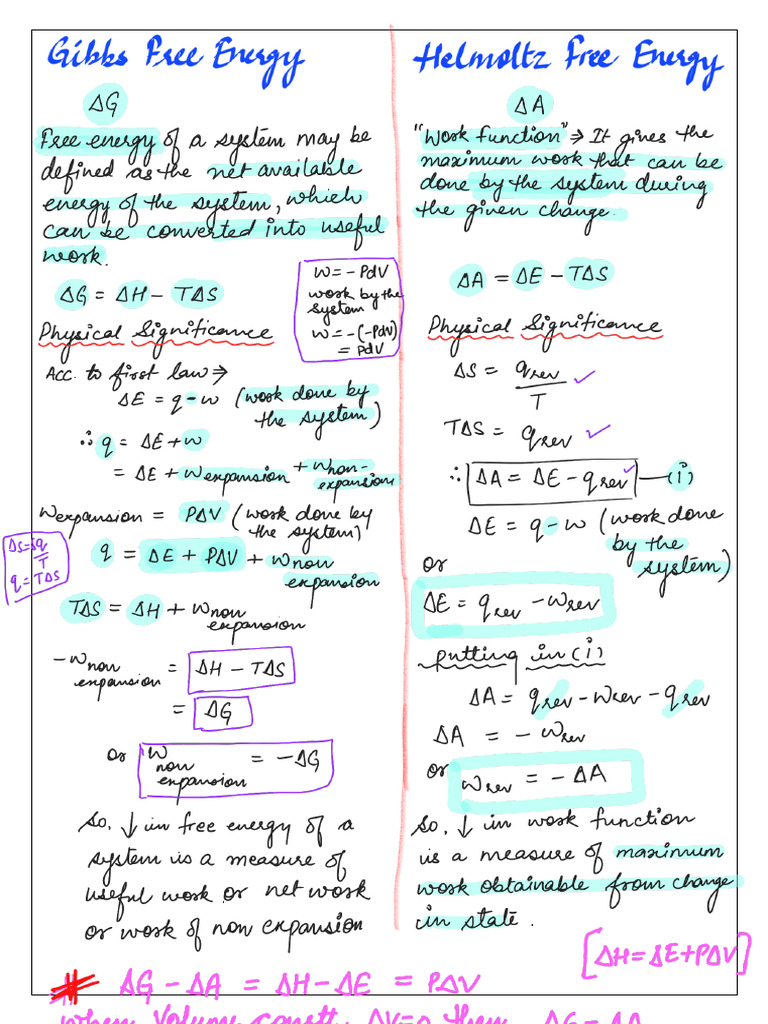 Gibbs Free Energy
ΔG
Free energy of a system may be
defined as the net available
energy of the system, which
can be converted into useful
work.
ΔG = ΔH - TΔS
W = -PdV
work by the
system
W = -(-PdV)
= PdV
Physical Significance
Acc. to first law ⇒
ΔE = q - w (work done by
the system)
∴ q = ΔE + w
= ΔE + w expansion + w non-
expansion
w expansion = PΔV (work done by
the system)
ΔS = q
T
q = TΔS
q = ΔE + PΔV + w non
expansion
TΔS = ΔH + w non
expansion
-w non = ΔH - TΔS
expansion
= ΔG
or w non = -ΔG
expansion
So, ↓ in free energy of a
system is a measure of
useful work or net work
or work of non expansion
Helmoltz Free Energy
ΔA
"Work function" ⇒ It gives the
maximum work that can be
done by the system during
the given change.
ΔA = ΔE - TΔS
Physical Significance
ΔS = q rev ✓
T
TΔS = q rev ✓
∴ ΔA = ΔE - q rev ✓ — (i)
ΔE = q - w (work done
by the
system)
or
ΔE = q rev - w rev
putting in (i)
ΔA = q rev - w rev - q rev
ΔA = - w rev
or w rev = - ΔA
So, ↓ in work function
is a measure of maximum
work obtainable from change
in state.
[ΔH = ΔE + PΔV]
# ΔG - ΔA = ΔH - ΔE = PΔV
when Volume constt. ΔV=0 then ΔG = ΔA